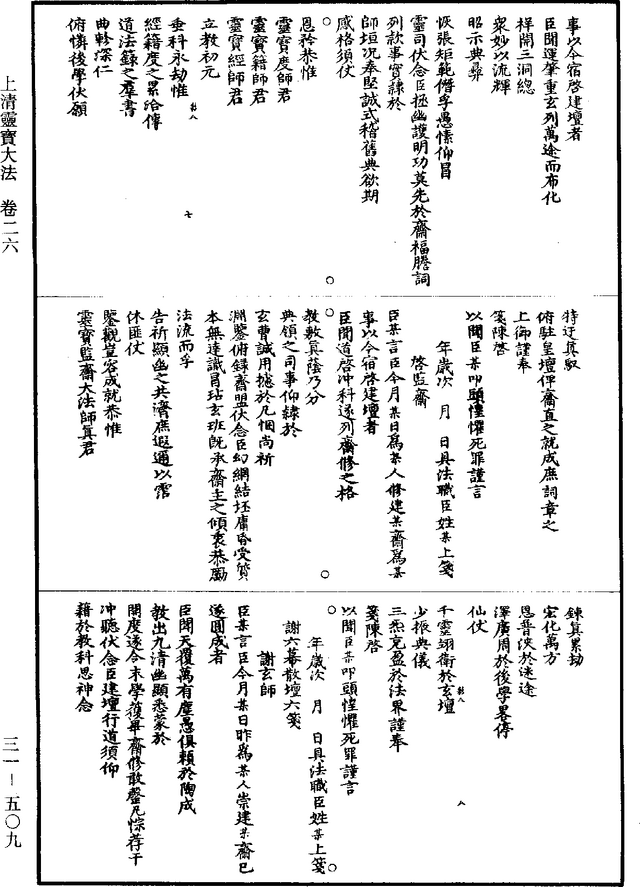 上清靈寶大法　卷二六
三一－五〇九
事以今宿啓建壇者
臣聞運肇重玄列萬途而布化
祥開三洞總
衆妙以流輝
昭示典彝
恢張矩範僭孚愚愫仰冒
靈司伏念臣拯幽護明功莫先於齋福謄詞
列款事實隸於
師垣况奉堅誠式稽舊典欲期
感格須仗
恩矜恭惟
靈寶度師君
靈寶籍師君
靈寶經師君
立教初元
垂科永劫惟
經籍度之累給傳
道法錄之羣書
曲軫深仁
俯憐後學伏願
七
特迂眞馭
俯駐皇壇俾齋直之就成庶詞章之
上御謹奉
箋陳啓
以聞臣某叩頭惶懼死罪謹言
年歲次　月　日具法職臣姓某上箋
啓監齋
臣某言臣今月某日爲某人修建某齋爲某
事以今宿啓建壇者
臣聞道啓冲科遂列齋修之格
教敷眞蔭乃分
典領之司事仰隸於
玄曹誠用攄於凡悃尚祈
淵鑒俯錄齋盟伏念臣幻網結坯庸昏受質
本無達識冒玷玄班旣承齋主之傾衷恭勵
法流而孚
告祈顯幽之共濟庶遐邇以霑
休匪仗
鑒觀豈容成就恭惟
靈寶監齋大法師眞君
鍊眞累劫
宏化萬方
恩普浹於迷途
澤廣周於後學畧停
仙仗
千靈翊衛於玄壇
少振典儀
三炁充盈於法界謹奉
箋陳啓
以聞臣某叩頭惶懼死罪謹言
年歲次　月　日具法職臣姓某上箋
謝六幕散壇六箋
謝玄師
臣某言臣今月某日昨爲某人崇建某齋已
遂圓成者
臣聞天覆萬有塵愚俱賴於陶成
教出九清幽顯悉蒙於
開度逮今末學獲畢齋修敢罄凡悰荐干
冲聽伏念臣建壇行道須仰
籍於教科思神念
八